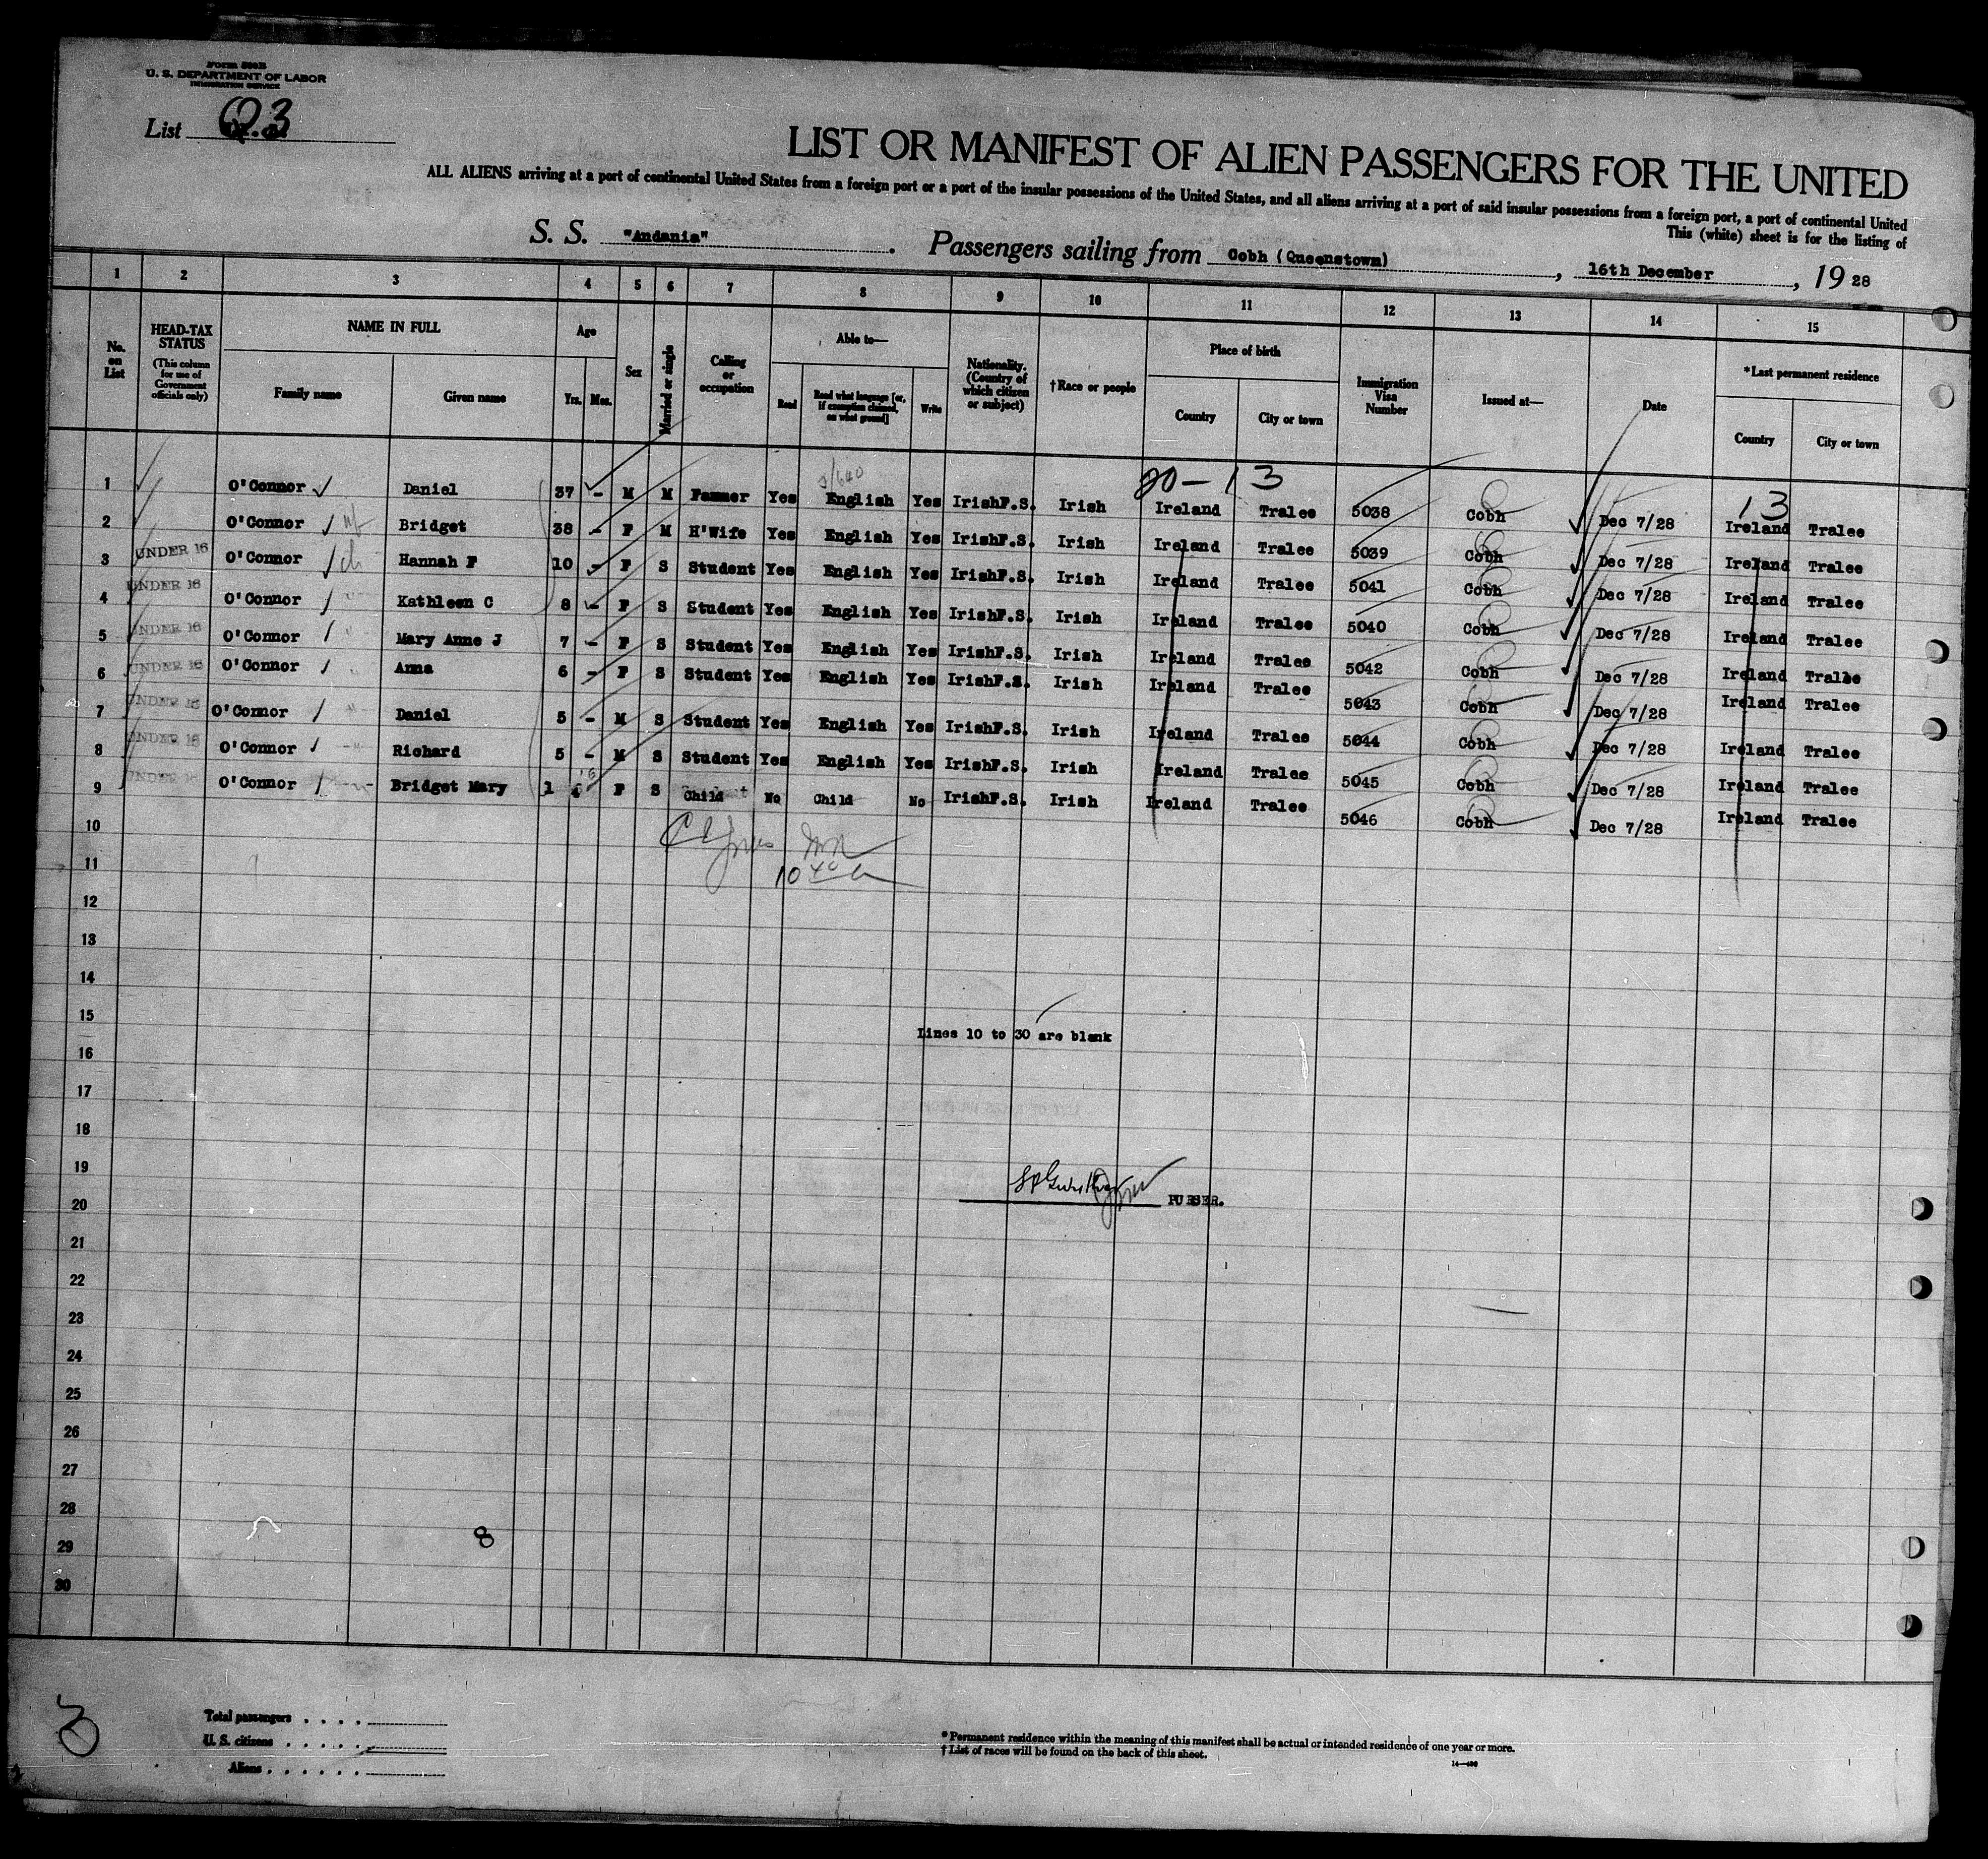 Form 500B
U. S. DEPARTMENT OF LABOR
IMMIGRATION SERVICE
List Q3
LIST OR MANIFEST OF ALIEN PASSENGERS FOR THE UNITED
ALL ALIENS arriving at a port of continental United States from a foreign port or a port of the insular possessions of the United States, and all aliens arriving at a port of said insular possessions from a foreign port, a port of continental United
This (white) sheet is for the listing of
S. S. "Andania". Passengers sailing from Cobh (Queenstown), 16th December, 19 28
1 2 3 4 5 6 7 8 9 10 11 12 13 14 15
No. on List
HEAD-TAX STATUS
(This column for use of Government officials only)
NAME IN FULL
Family name Given name
Age
Yrs. Mos.
Sex
Married or single
Calling or occupation
Able to—
Read Read what language [or, if exemption claimed, on what ground] Write
Nationality. (Country of which citizen or subject)
†Race or people
Place of birth
Country City or town
Immigration Visa Number
Issued at—
Date
*Last permanent residence
Country City or town
20-13
13
1 O'Connor Daniel 37 - M M Farmer Yes English Yes IrishF.S. Irish Ireland Tralee 5038 Cobh Dec 7/28 Ireland Tralee
2 O'Connor wf Bridget 38 - F M H'Wife Yes English Yes IrishF.S. Irish Ireland Tralee 5039 Cobh Dec 7/28 Ireland Tralee
3 UNDER 16 O'Connor ch Hannah F 10 - F S Student Yes English Yes IrishF.S. Irish Ireland Tralee 5041 Cobh Dec 7/28 Ireland Tralee
4 UNDER 16 O'Connor " Kathleen C 8 - F S Student Yes English Yes IrishF.S. Irish Ireland Tralee 5040 Cobh Dec 7/28 Ireland Tralee
5 UNDER 16 O'Connor " Mary Anne J 7 - F S Student Yes English Yes IrishF.S. Irish Ireland Tralee 5042 Cobh Dec 7/28 Ireland Tralee
6 UNDER 16 O'Connor " Anna 6 - F S Student Yes English Yes IrishF.S. Irish Ireland Tralee 5043 Cobh Dec 7/28 Ireland Tralee
7 UNDER 16 O'Connor " Daniel 5 - M S Student Yes English Yes IrishF.S. Irish Ireland Tralee 5044 Cobh Dec 7/28 Ireland Tralee
8 UNDER 16 O'Connor " Richard 5 - M S Student Yes English Yes IrishF.S. Irish Ireland Tralee 5045 Cobh Dec 7/28 Ireland Tralee
9 UNDER 16 O'Connor " Bridget Mary 1 F S Child No Child No IrishF.S. Irish Ireland Tralee 5046 Cobh Dec 7/28 Ireland Tralee
10
11
12
13
14
15 Lines 10 to 30 are blank
16
17
18
19
20 PURSER.
21
22
23
24
25
26
27
28
29 8
30
Total passengers . . . .
U. S. citizens . . . . .
Aliens . . . . . .
* Permanent residence within the meaning of this manifest shall be actual or intended residence of one year or more.
† List of races will be found on the back of this sheet.